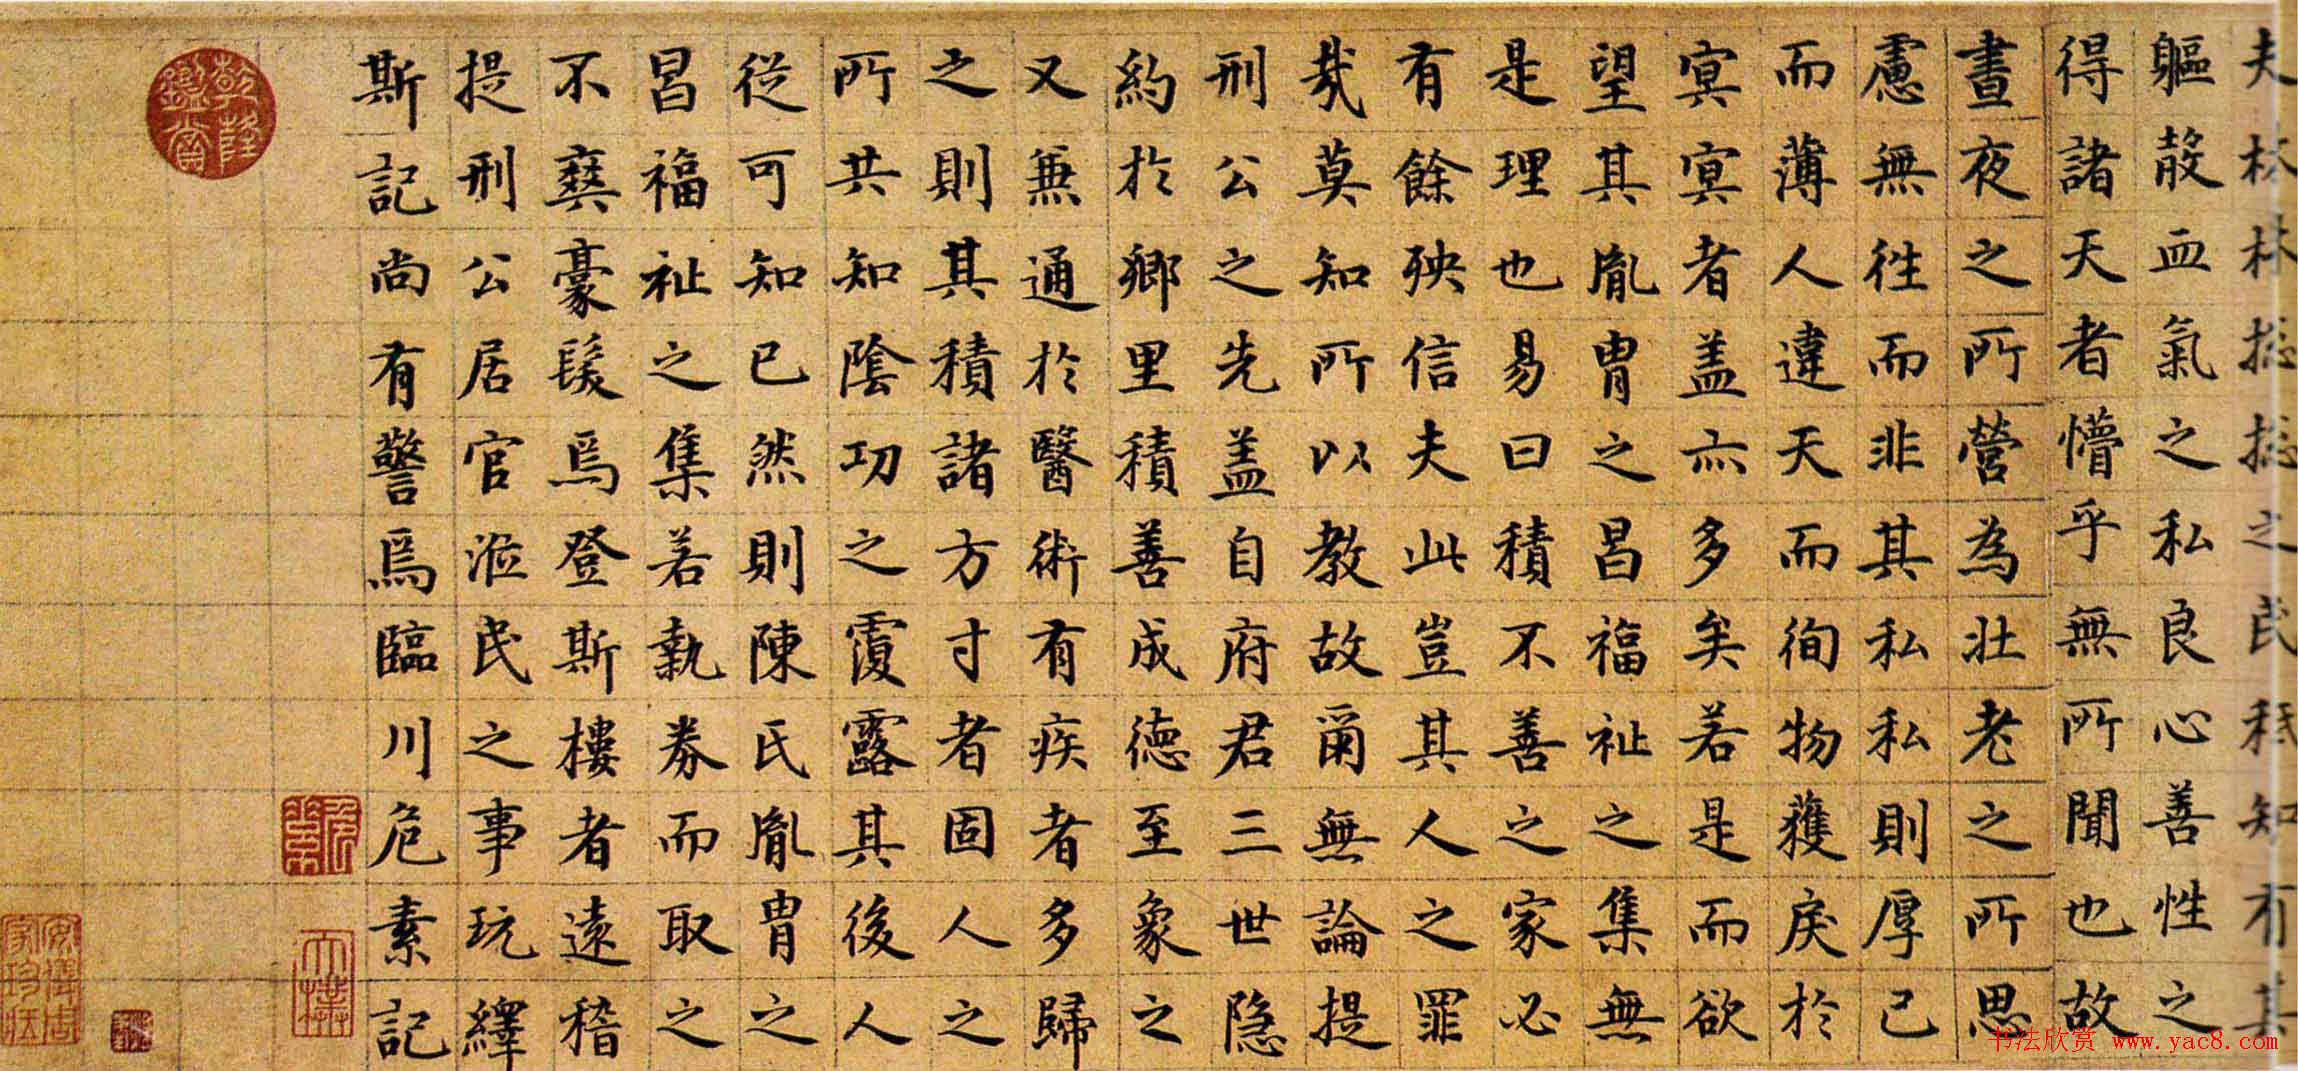 夫林林摠摠之民秪知有其
軀殽血氣之私良心善性之
得諸天者懵乎無所聞也故
晝夜之所營為壯老之所思
慮無徃而非其私私則厚己
而薄人違天而徇物蒦戾於
冥冥者盖亦多矣若是而欲
望其胤胄之昌福祉之集無
是理也易曰積不善之家必
有餘殃信夫此豈其人之罪
㢤莫知所以教故爾無論提
刑公之先盖自府君三世隐
約於鄉里積善成德至象之
又兼通於醫術有疾者多歸
之則其積諸方寸者固人之
所共知陰功之覆露其後人
從可知已然則陳氏胤胄之
昌福祉之集若執券而取之
不爽豪髮焉登斯樓者遠稽
提刑公居官涖民之事玩繹
斯記尚有警焉臨川危素記
乾隆鑑賞
安儀周家珍藏
书法欣赏 www.yac8.com